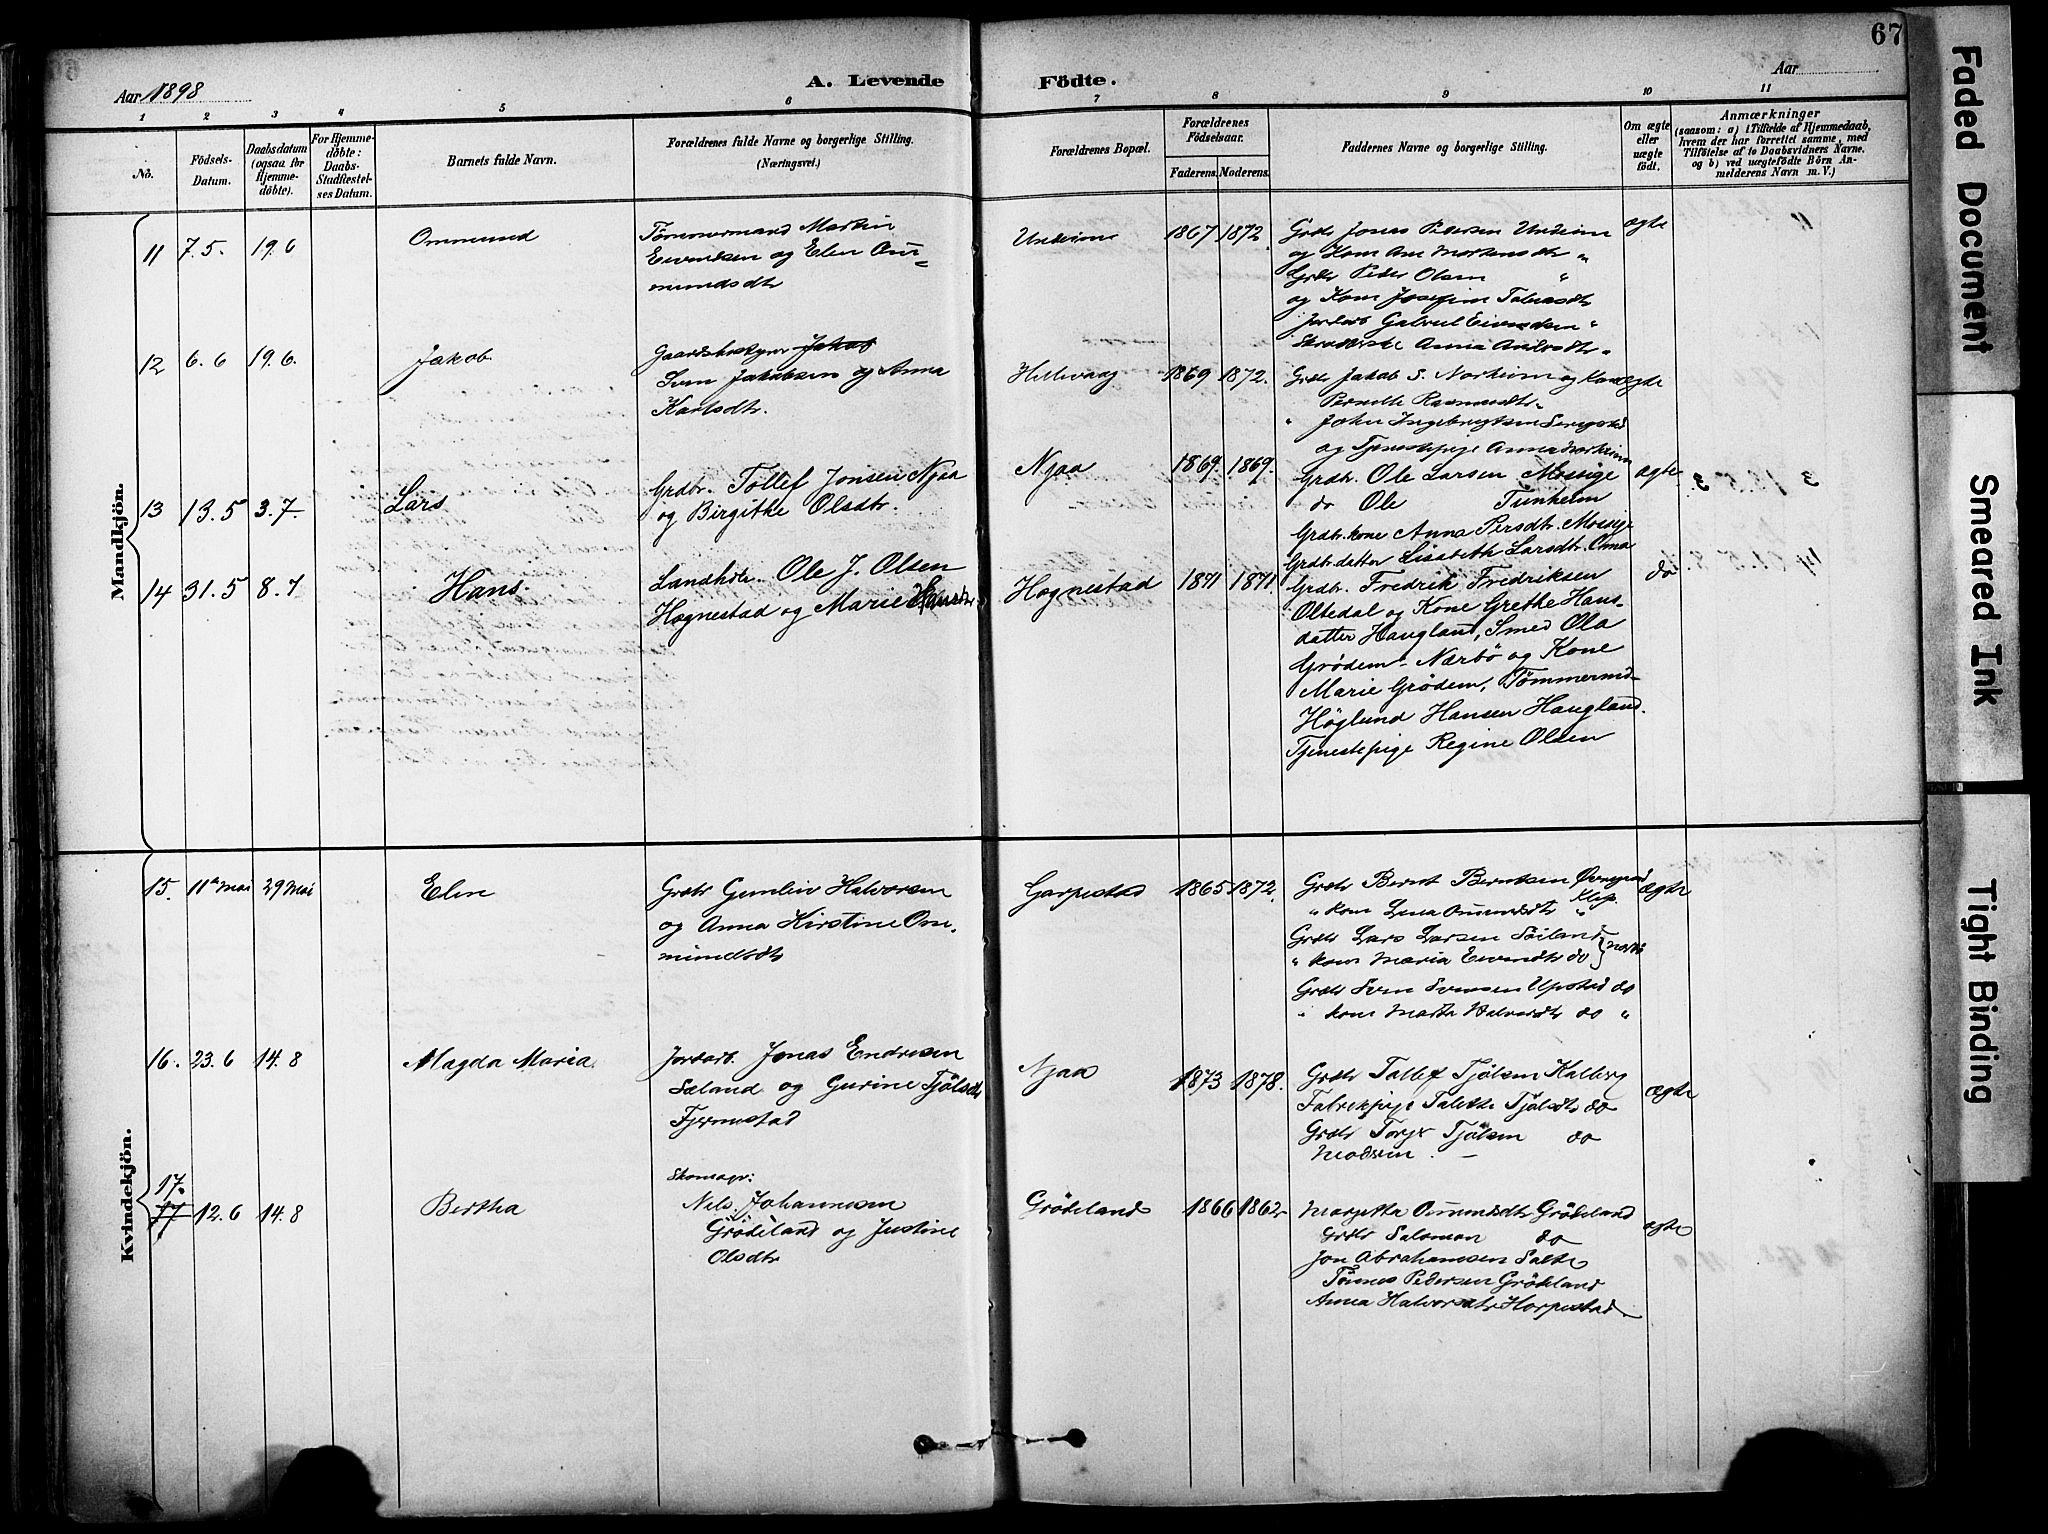 67
Aar 1898
A. Levende Födte.
Aar
1 2 3 4 5 6 7 8 9 10 11
No.
Födsels-Datum.
Daabsdatum (ogsaa for Hjemme-döbte).
For Hjemme-döbte: Daabs-Stadfæstel-ses Datum.
Barnets fulde Navn.
Forældrenes fulde Navne og borgerlige Stilling. (Næringsvei.)
Forældrenes Bopæl.
Forældrenes Födselsaar.
Faderens. Moderens.
Faddernes Navne og borgerlige Stilling.
Om ægte eller uægte födt.
Anmærkninger
(saasom: a) i Tilfælde af Hjemmedaab, hvem der har forrettet samme, med Tilföielse af to Daabsvidners Navne, og b) ved uægtefödte Börn Anmelderens Navn m. V.)
Mandkjön.
11 7.5. 19.6 Ommund
Tömmermand Martin
Eivindsen og Elen Om=
mundsdtr
Undeim 1867 1872.
Grdbr Jonas Pedersen Undeim
og Kone Ane Mortensdtr "
Grdbr Peder Olsen "
og Kone Josefine Tobiasdtr
Jordarb Gabriel Eivindsen "
Anna
ægte
12 6.6 19.6. Jakob.
Gaardsbestyrer Jakob
Sven Jakobsen og Anna
Karlsdtr.
Hellevaag 1869 1872.
Grdbr Jakob S. Norheim og Kone
Pernille Rasmusdtr
" John Ingebrigtsen
og Tjenestepige Anna Norheim
ægte
13 13.5 3.7. Lars
Grdbr. Tollef Jonsen Njaa
og Birgithe Olsdtr.
Njaa 1869. 1869.
Grdbr. Ole Larsen Mossige
do Ole Tunheim
Grdbr. kone Anna Persdtr. Mossige
Grdbr. datter Lisabeth Larsdtr. Oma
ægte
14 31.5 8.7 Hans.
Landhdlr. Ole J. Olsen
Hognestad og Marie Hansdtr.
Hognestad 1871 1871.
Grdbr. Fredrik Fredriksen
Oltedal og Kone Grethe Hans-
datter Haugland, Smed Ola
Grödem - Nærbö og Kone
Marie Grödem, Tömmermd.
Höglund Hansen Haugland.
Tjenestepige Regine Olsen
do
Kvindekjön.
15. 11te Mai 29 Mai Elen
Grdbr Gunleiv Halvorsen
og Anna Kirstine Om-
mundsdtr
Garpestad 1865 1872.
Grdbr Bernt Berntsen Klep.
" kone Lena Ommundsdtr "
Grdbr Lars Larsen Söiland
" kone Maria Eivindtr do
Grdbr Sven Svensen Upstad do
" kone Marta Halvordtr do "
ægte
16. 23.6 14.8 Magda Maria.
Jordarb. Jonas Endresen
Sæland og Gurine Tjölsdtr
Fjermestad
Njaa 1873 1878.
Grdbr Tollef Tjölsen Kalberg
Fabrikpige Talette Tjölsdtr do
Grdbr Torge Tjölsen do
Moderen. -
ægte
17.
17 12.6 14.8 Bertha
Skomagr:
Nels Johannesen
Grödeland og Justine
Olsdtr
Grödeland 1866 1862
Margetha Ommundsdtr Grödeland
Grdbr Salomon do
Jon Abrahamsen Salte
Tönnes Pedersen Grödeland
Anna Halvorsdtr Horpestad
ægte
Faded Document
Smeared Ink
Tight Binding